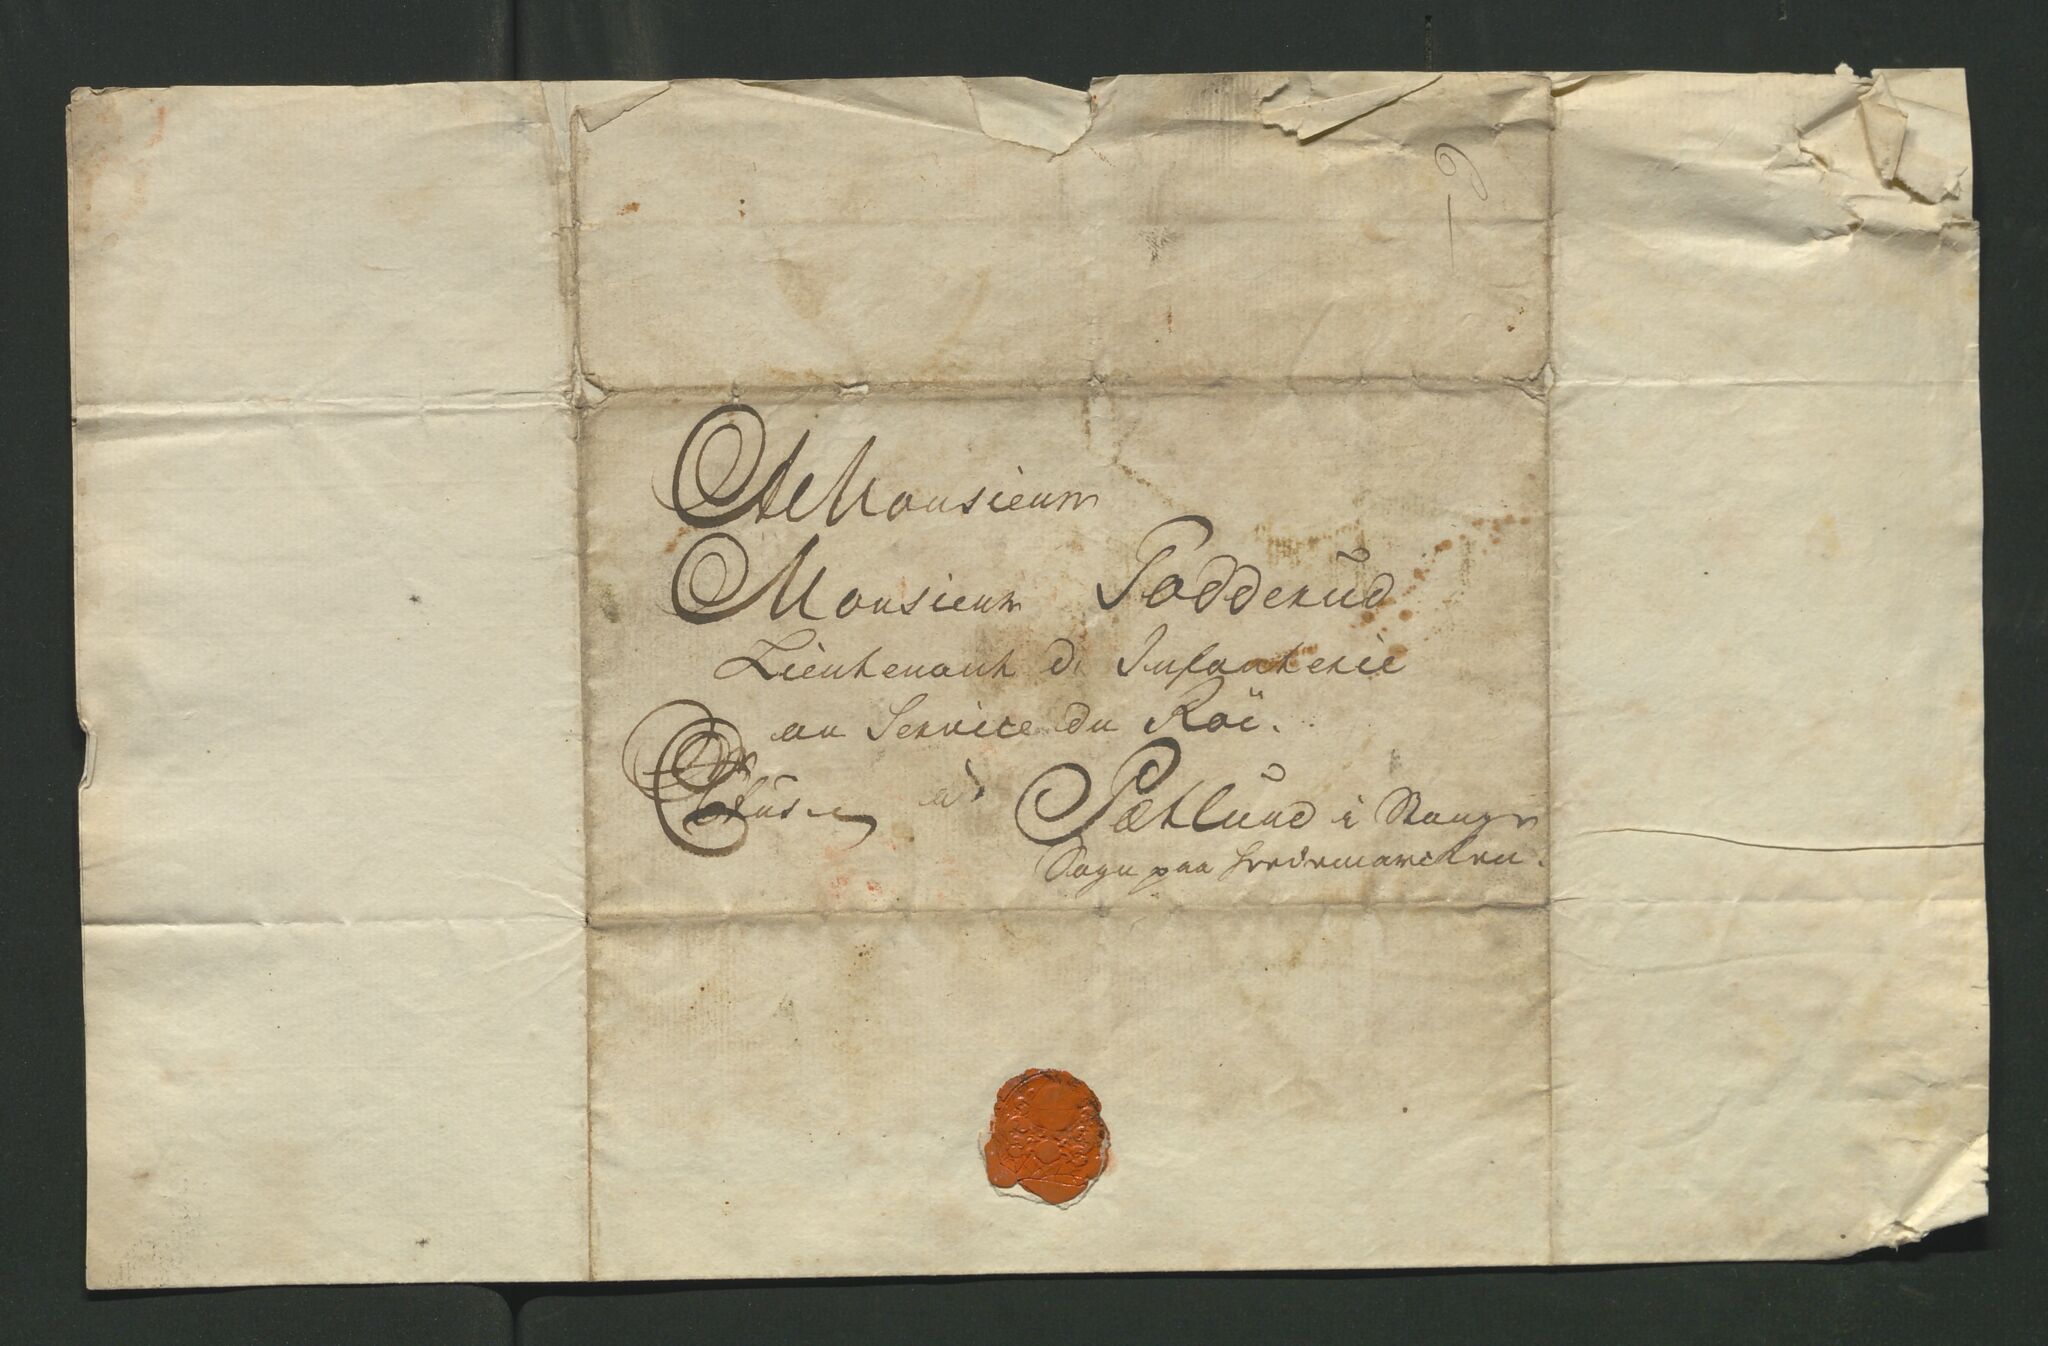 A Monsieur
Monsieur Podderud
Lieutenant d' Infanterie
au Service du Roï.
à Pætlund i Stange
Sogn paa Hedemarcken.